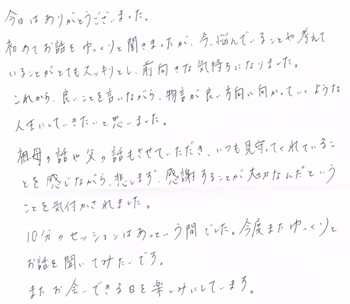 今日はありがとうございました。
初めてお話をゆっくりと聞きましたが、今、悩んでいることや考えて
いることがとてもスッキリとし、前向きな気持ちになりました。
これから、良いことを言いながら、物事が良い方向に向かっていくような
人生にしていきたいと思いました。
祖母の話や父の話もさせていただき、いつも見守ってくれているこ
とを感じながら、悲しまず、感謝することが大切なんだという
ことを気付かされました。
10分のセッションはあっという間でした。今度またゆっくりと
お話を聞いてみたいです。
またお会いできる日を楽しみにしています。